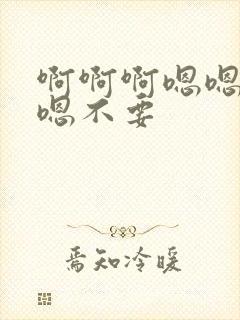 啊啊啊嗯嗯
嗯不要
焉知冷暖